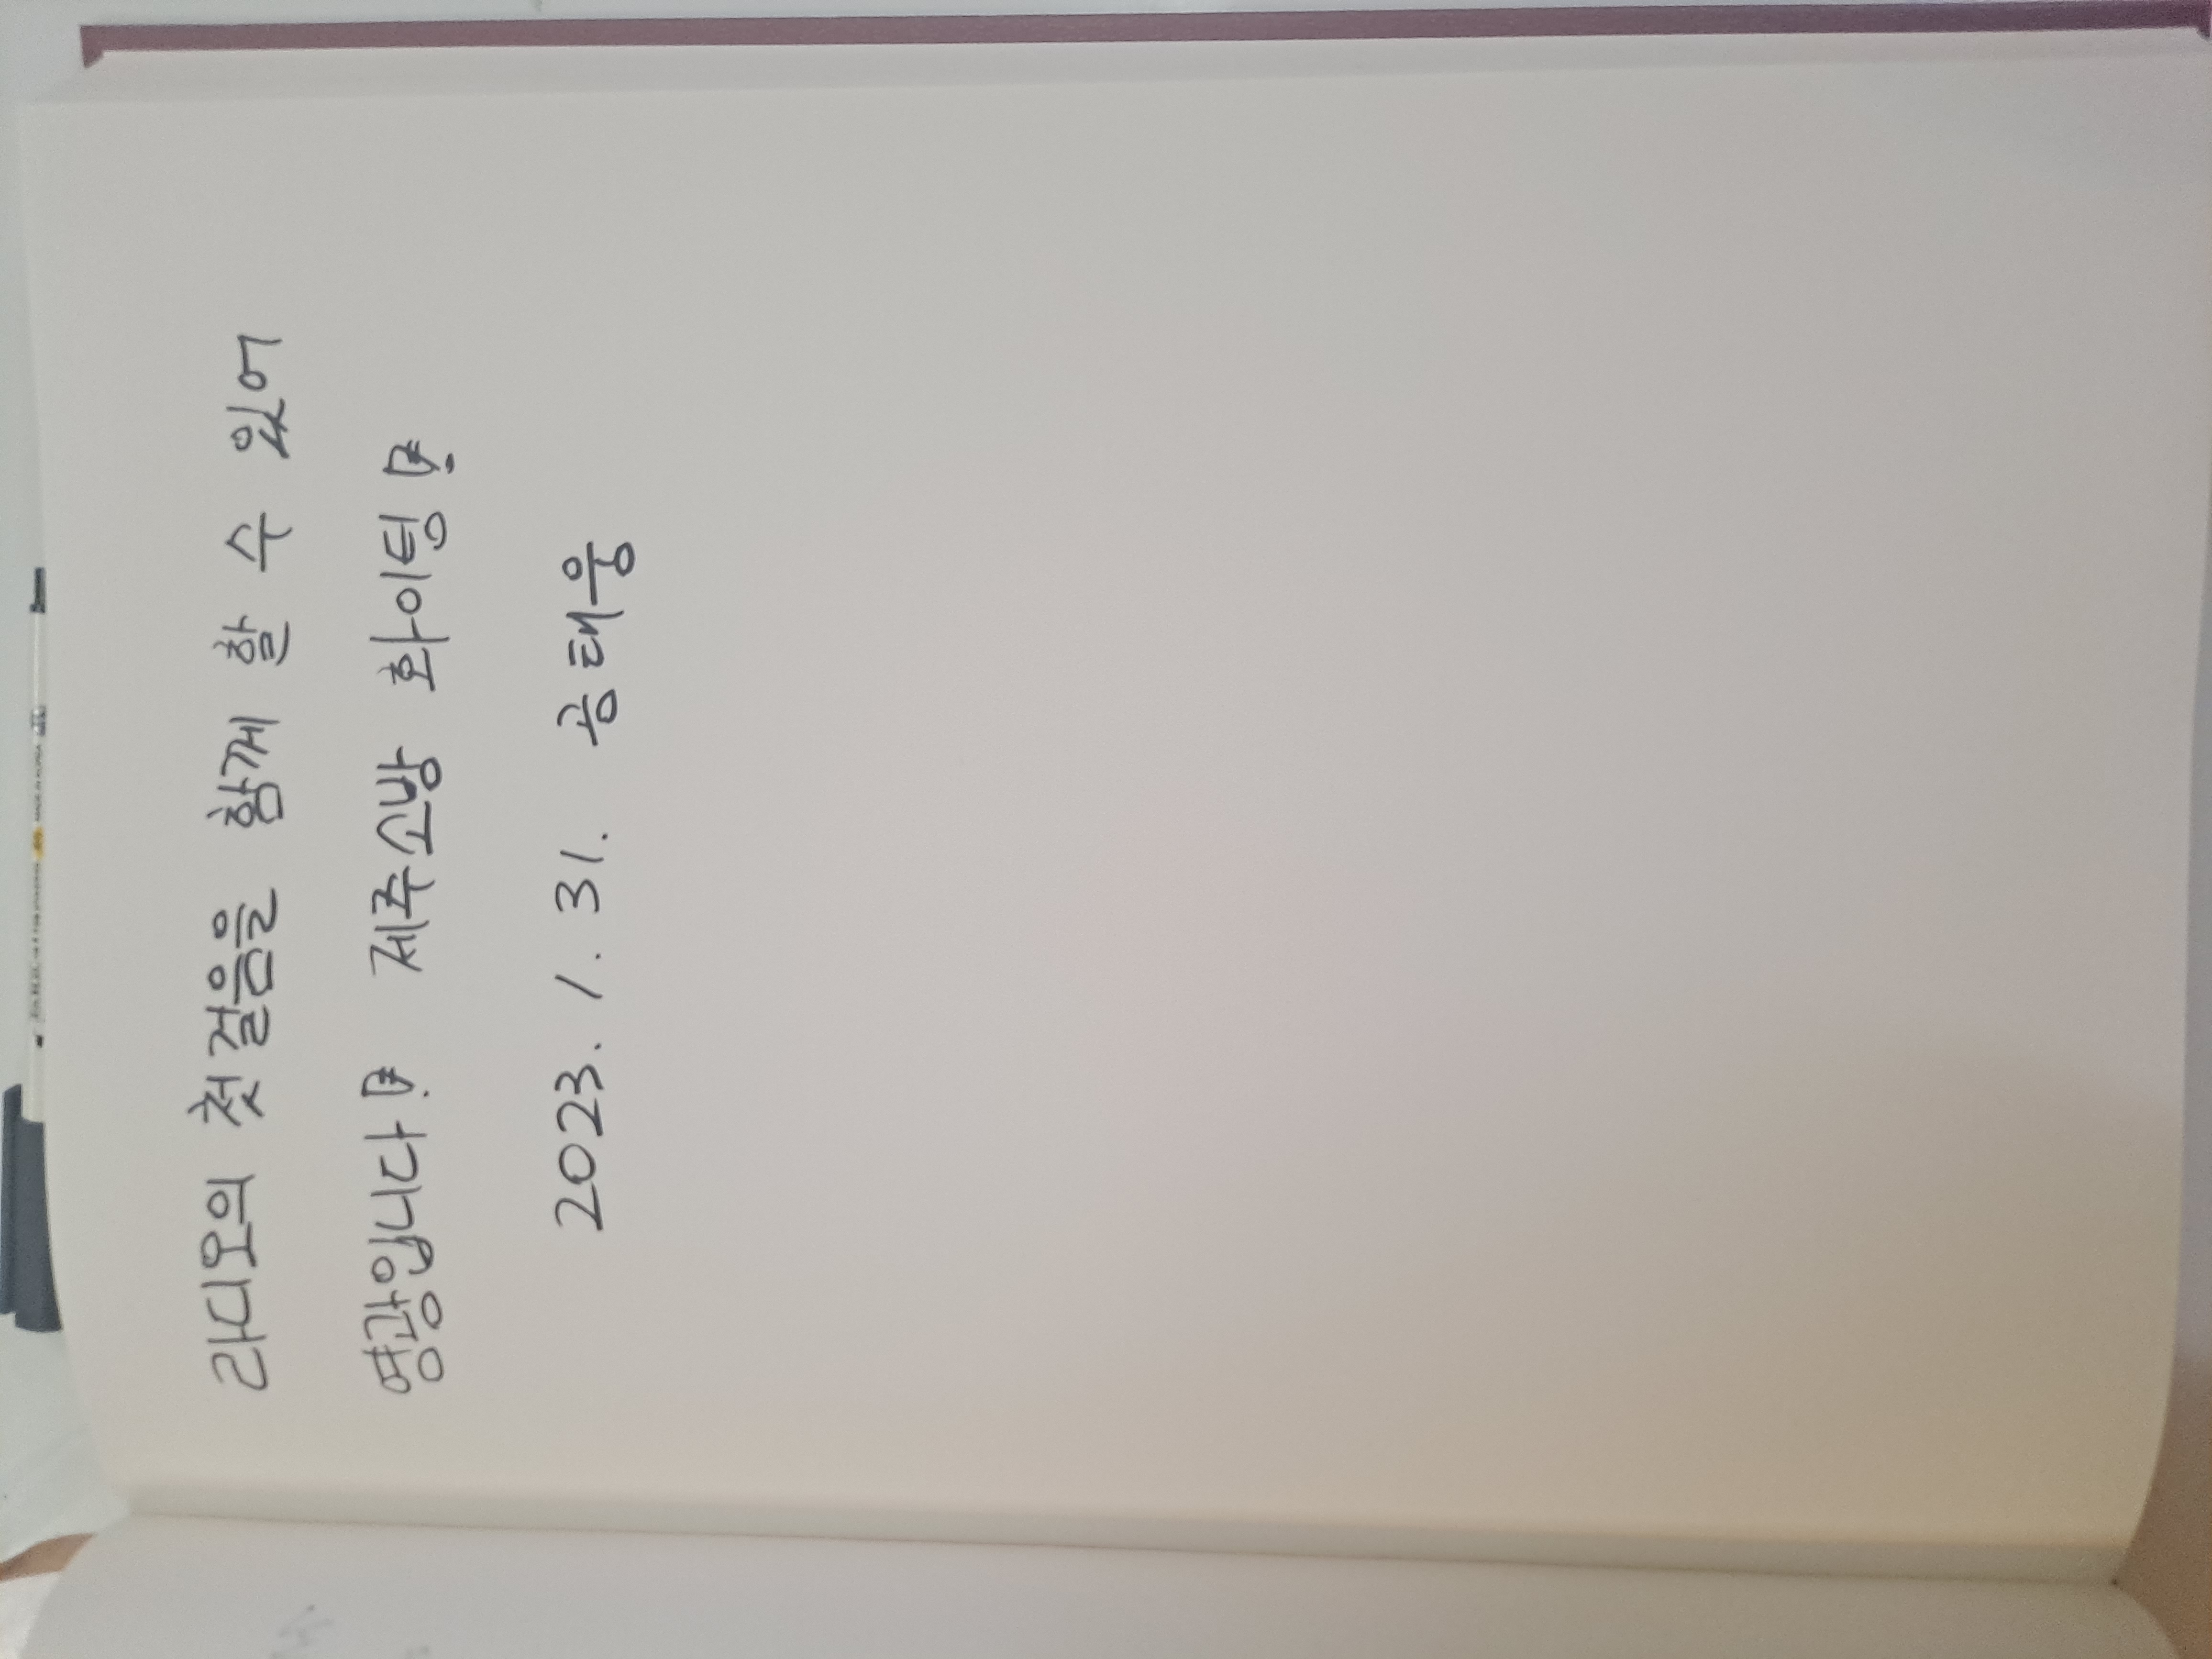 라디오의 첫걸음을 함께 할 수 있어
영광입니다! 제주소방 화이팅!
2023. 1. 31. 공태웅